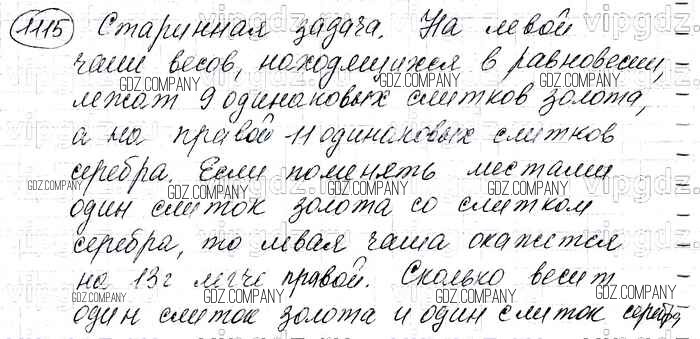 1115 Старинная задача. На левой
чаши весов, находящихся в равновесии,
лежат 9 одинаковых слитков золота,
а на правой 11 одинаковых слитков
серебра. Если поменять местами
один слиток золота со слитком
серебра, то левая чаша окажется
на 13г легче правой. Сколько весит
один слиток золота и один слиток серебра